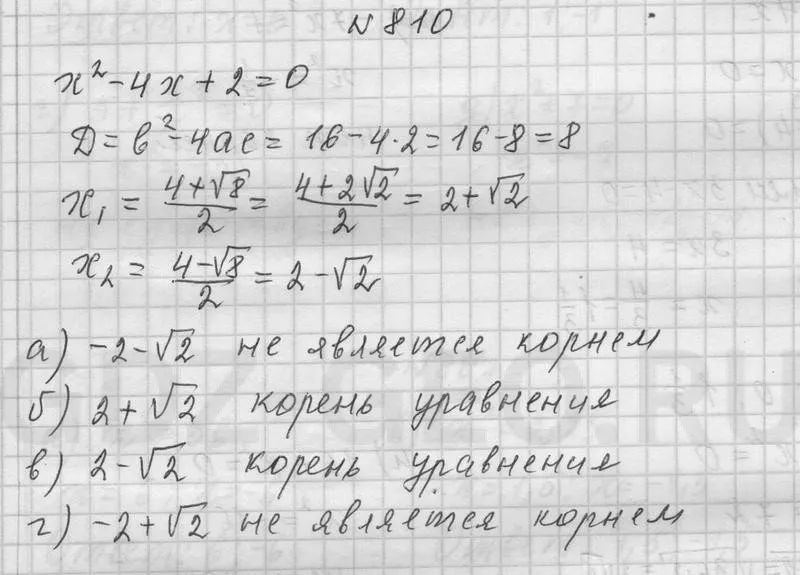 № 810
x² - 4x + 2 = 0
Д = в² - 4ас = 16 - 4·2 = 16 - 8 = 8
x₁ = (4+√8)/2 = (4+2√2)/2 = 2 + √2
x₂ = (4-√8)/2 = 2 - √2
а) -2-√2 не является корнем
б) 2 + √2 корень уравнения
в) 2 - √2 корень уравнения
г) -2 + √2 не является корнем